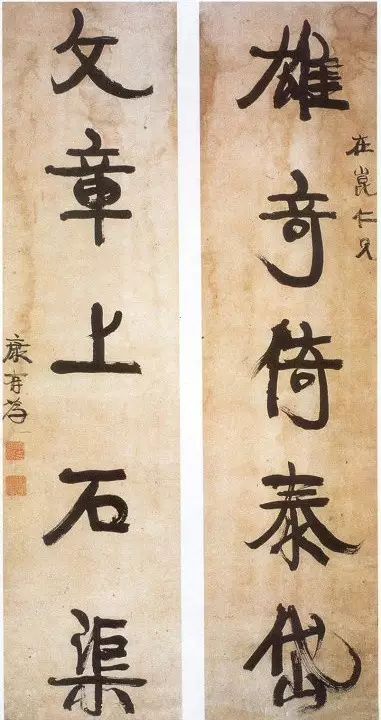 雄奇倚泰岱
在崑仁兄
文章上石渠
康有為